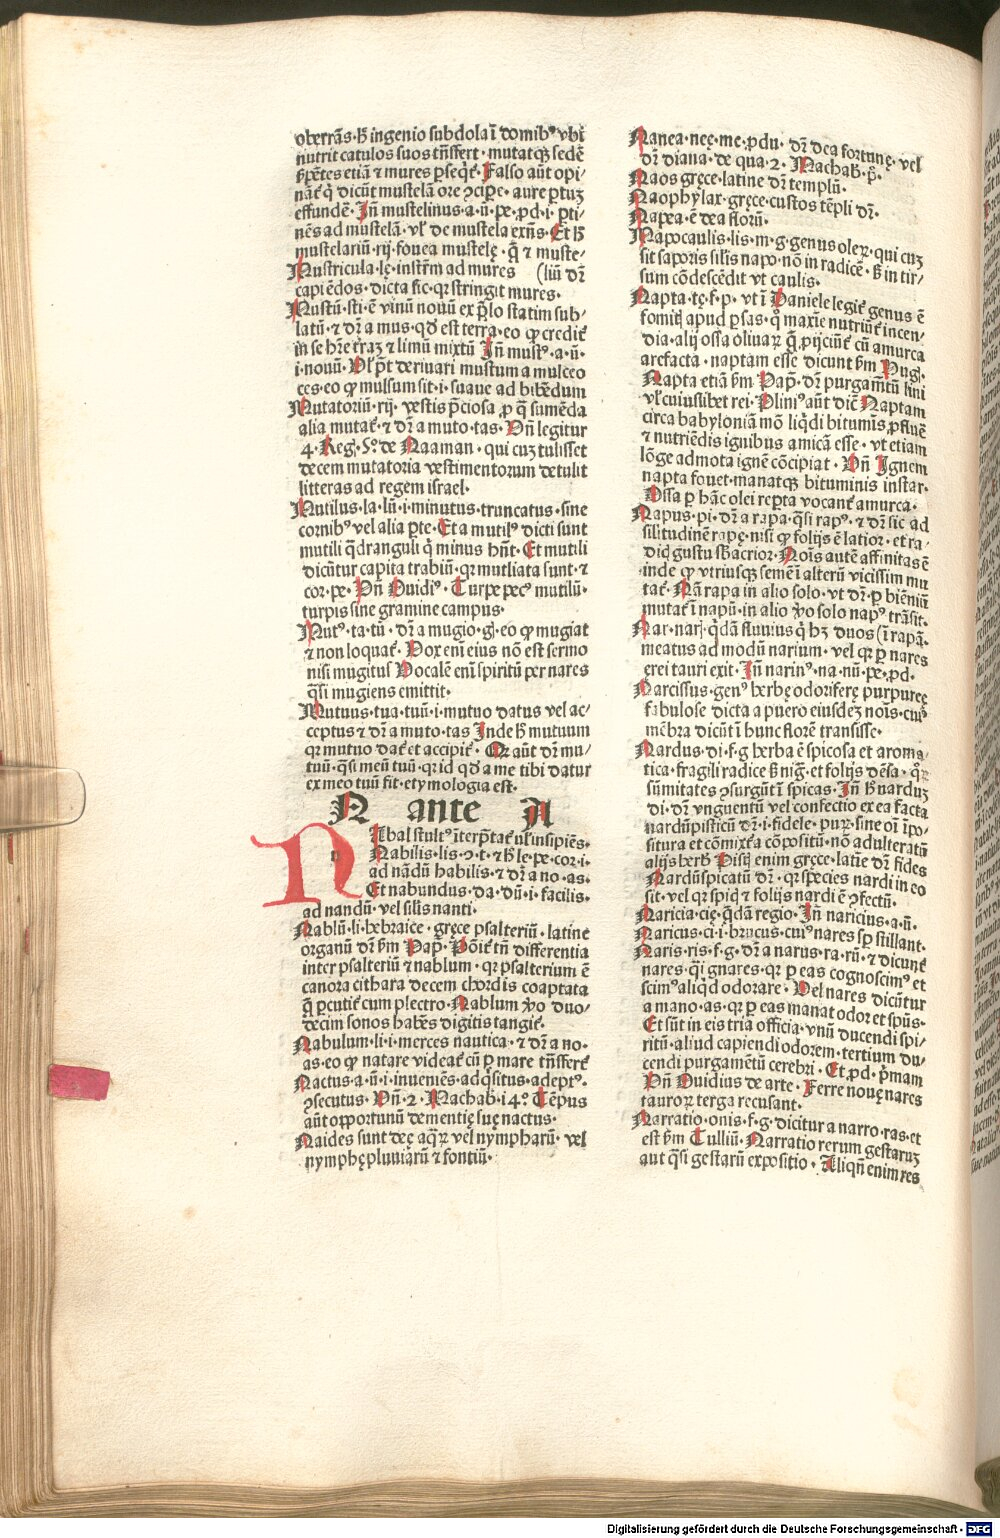 oberrãs· h̃ ingenio subdola ĩ domibꝰ vbi
nutrit catulos suos tñsfert· mutatqꝫ sedẽ
Falso aũt opi-
nãt᷑ ꝙ dicũt mustelã ore ꝯcipe· aure ꝑtuꝫ
effundẽ· Jñ mustelinus·a·ũ· pe·ꝓd·i· ꝑti-
nẽs ad mustelã· vľ de mustela exñs· Et h̃
mustelariũ·rij·fouea mustelę· q̃ ⁊ muste-
Mustricula·lę·instr̃m ad mures (liũ dr̃
capiẽdos·dicta sic·qꝛ stringit mures·
Mustũ·sti·ẽ vinũ nouũ ex p̃lo statim sub/
latũ·⁊ dr̃ a mus·qđ est terra·eo ꝙ credit᷑
in se hr̃e t̃raꝫ ⁊ limũ mixtũ Jñ mustꝰ·a·ũ·
i·nouũ· Vľ p̃t deriuari mustum a mulceo
ces·eo ꝙ mulsum sit·i·suaue ad bibẽdum
Mutatoriũ·rij· vestis p̃ciosa· ꝓ q̃ sumẽda
alia mutat᷑·⁊ dr̃ a muto·tas· Vñ legitur
4·Reg·5º·de Naaman· qui cuꝫ tulisset
decem mutatoria vestimentorum detulit
litteras ad regem israel·
Mutilus·la·lũ·i·minutus·truncatus·sine
cornibꝰ vel alia ꝑte· Et a mutilꝰ dicti sunt
mutili q̃dranguli q̃ minus hñt· Et mutili
dicũtur capita trabiũ·qꝛ mutliata sunt·⁊
cor·pe· Vñ Ouidiꝰ· Turpe pecꝰ mutilũ·
turpis sine gramine campus·
Mutꝰ·ta·tũ· dr̃ a mugio·gi·eo ꝙ mugiat
⁊ non loquat᷑· Vox eni eius nõ est sermo
nisi mugitus Vocalẽ eni spiritũ per nares
q̃si mugiens emittit·
Mutuus·tua·tuũ·i·mutuo datus vel ac/
ceptus ⁊ dr̃ a muto·tas Jnde h̃ mutuum
qꝛ mutuo dat᷑ et accipit᷑· Qꝛ aũt dr̃ mu/
tuũ·q̃si meũ tuũ·qꝛ id qđ a me tibi datur
ex meo tuũ fit·etymologia est·
N ante A
NAbal stultꝰ ĩterp̃tat᷑ vľ insipiẽs·
Nabilis·lis·ꝯ·t·⁊ h̃ le·pe·cor·i·
ad nãdũ habilis·⁊ dr̃ a no·as·
Et nabundus·da·dũ·i·facilis·
ad nandũ·vel silis nanti·
Nablũ·li·hebraice·gręce psalteriũ·latine
organũ dr̃ ẜm Pap̃· Põit᷑ tñ differentia
inter psalteriũ ⁊ nablum·qꝛ psalterium ẽ
canora cithara decem chordis coaptata
q̃ ꝑcutit᷑ cum plectro· Nablum ṽo duo/
decim sonos habẽs digitis tangit᷑·
Nabulum·li·i·merces nautica·⁊ dr̃ a no·
as·eo ꝙ natare videat᷑ cũ ꝑ mare tñsfert᷑
Nactus·a·ũ·i·inueniẽs·adq̃situs·adeptꝰ·
ꝯsecutus· Vñ·2·Machab·i4º· Tẽpus
aũt opportunũ dementię suę nactus·
Naides sunt deę aq̃ꝝ vel nympharũ· vel
nymphę pluuiarũ ⁊ fontiũ·
Nanea·neę·me·ꝓdu· dr̃ dea fortunę·vel
dr̃ diana·de qua·2·Machab·p̃·
Naos gręce·latine dr̃ templũ·
Naophylax·gręce·custos tẽpli dr̃·
Napea·ẽ dea florũ·
Napocaulis·lis·m·g·genus oleꝝ·qui cuꝫ
sit saporis silis napo·nõ in radicẽ·h̃ in tir/
sum cõdescẽdit vt caulis·
Napta·tę·f·p·vt ĩ Daniele legit᷑·genus ẽ
fomitꝭ apud ꝑsas·q̃ maxĩe nutriũt᷑ incen/
dia·alij ossa oliuaꝝ q̃ ꝓijciũt᷑ cũ amurca
arefacta·naptam esse dicunt ẜm Hug·
Napta etiã ẜm Pap̃· dr̃ purgamẽtũ lini
vľ cuiuslibet rei· Pliniꝰ aũt dic̃ Naptam
circa babyloniã mõ liq̃di bituminis ꝓfluẽ
⁊ nutriẽdis ignibus amicã esse·vt etiam
lõge admota ignẽ cõcipiat· Vñ Jgnem
napta fouet·manatqꝫ bituminis instar·
Ossa ꝑ hãc olei reꝑta vocant᷑ amurca·
Napus·pi·dr̃ a rapa·q̃si rapꝰ·⁊ dr̃ sic ad
silitudinẽ rapę·nisi ꝙ folijs ẽ latior·et ra/
dix gustu sb̃acrior· Nois autẽ affinitas ẽ
inde ꝙ vtriusqꝫ semẽ ĩ alterũ vicissim mu
tat᷑· Nã rapa in alio solo·vt dr̃·ꝑ biẽniũ
mutat᷑ ĩ napũ·in alio ṽo solo napꝰ trãsit·
Nar·narꝭ·q̃dã fluuius q̃ hꝫ duos (ĩ rapã·
meatus ad modũ narium·vel qꝛ ꝑ nares
erei tauri exit· Jñ narinꝰ·na·nũ·pe·ꝓd·
Narcissus·genꝰ herbę odoriferę purpureę
fabulose dicta a puero eiusdeꝫ nois·cuiꝰ
mẽbra dicũt ĩ hunc florẽ transisse·
Nardus·di·f·g·herba ẽ spicosa et aroma-
tica·fragili radice h̃ nig̃·et folijs dẽsa·
sũmitates ꝯsurgũt ĩ spicas· Jñ h̃ narduꝫ
di·dr̃ vnguentũ vel confectio ex ea facta
nardũpisticũ dr̃·i·fidele·puꝝ·sine oi ĩpo-
situra et cõmixt̃a cõpositũ·nõ adulteratũ
alijs herbꝭ Pistꝭ enim gręce·latie dr̃ fides
Nardũspicatũ dr̃·qꝛ species nardi in eo
sit·vel qꝛ spicꝭ ⁊ folijs nardi ẽ ꝯfectũ·
Naricia·cię·q̃dã regio· Jñ naricius·a·ũ·
Naricus·ci·i·brucus·cuiꝰ nares sꝑ stillant·
Naris·ris·f·g·dr̃ a narus·ra·rũ·⁊ dicunt᷑
nares·q̃si gnares·qꝛ ꝑ eas cognoscimꝰ et
scimꝰ aliq̃d odorare· Vel nares dicũtur
a mano·as·qꝛ ꝑ eas manat odor et spũs·
Et sũt in eis tria officia·vnũ ducendi spi/
ritũ·aliud capiendi odorem·tertium du/
cendi purgamẽtũ cerebri· Et ꝓd·p̃mam
Vñ Ouidius de arte· Ferre nouę nares
tauroꝝ terga recusant·
Narratio·onis·f·g·dicitur a narro·ras·et
est ẜm Tulliũ· Narratio rerum gestaruꝫ
aut q̃si gestarũ expositio· Aliqñ enim res
Digitalisierung gefördert durch die Deutsche Forschungsgemeinschaft - DFG